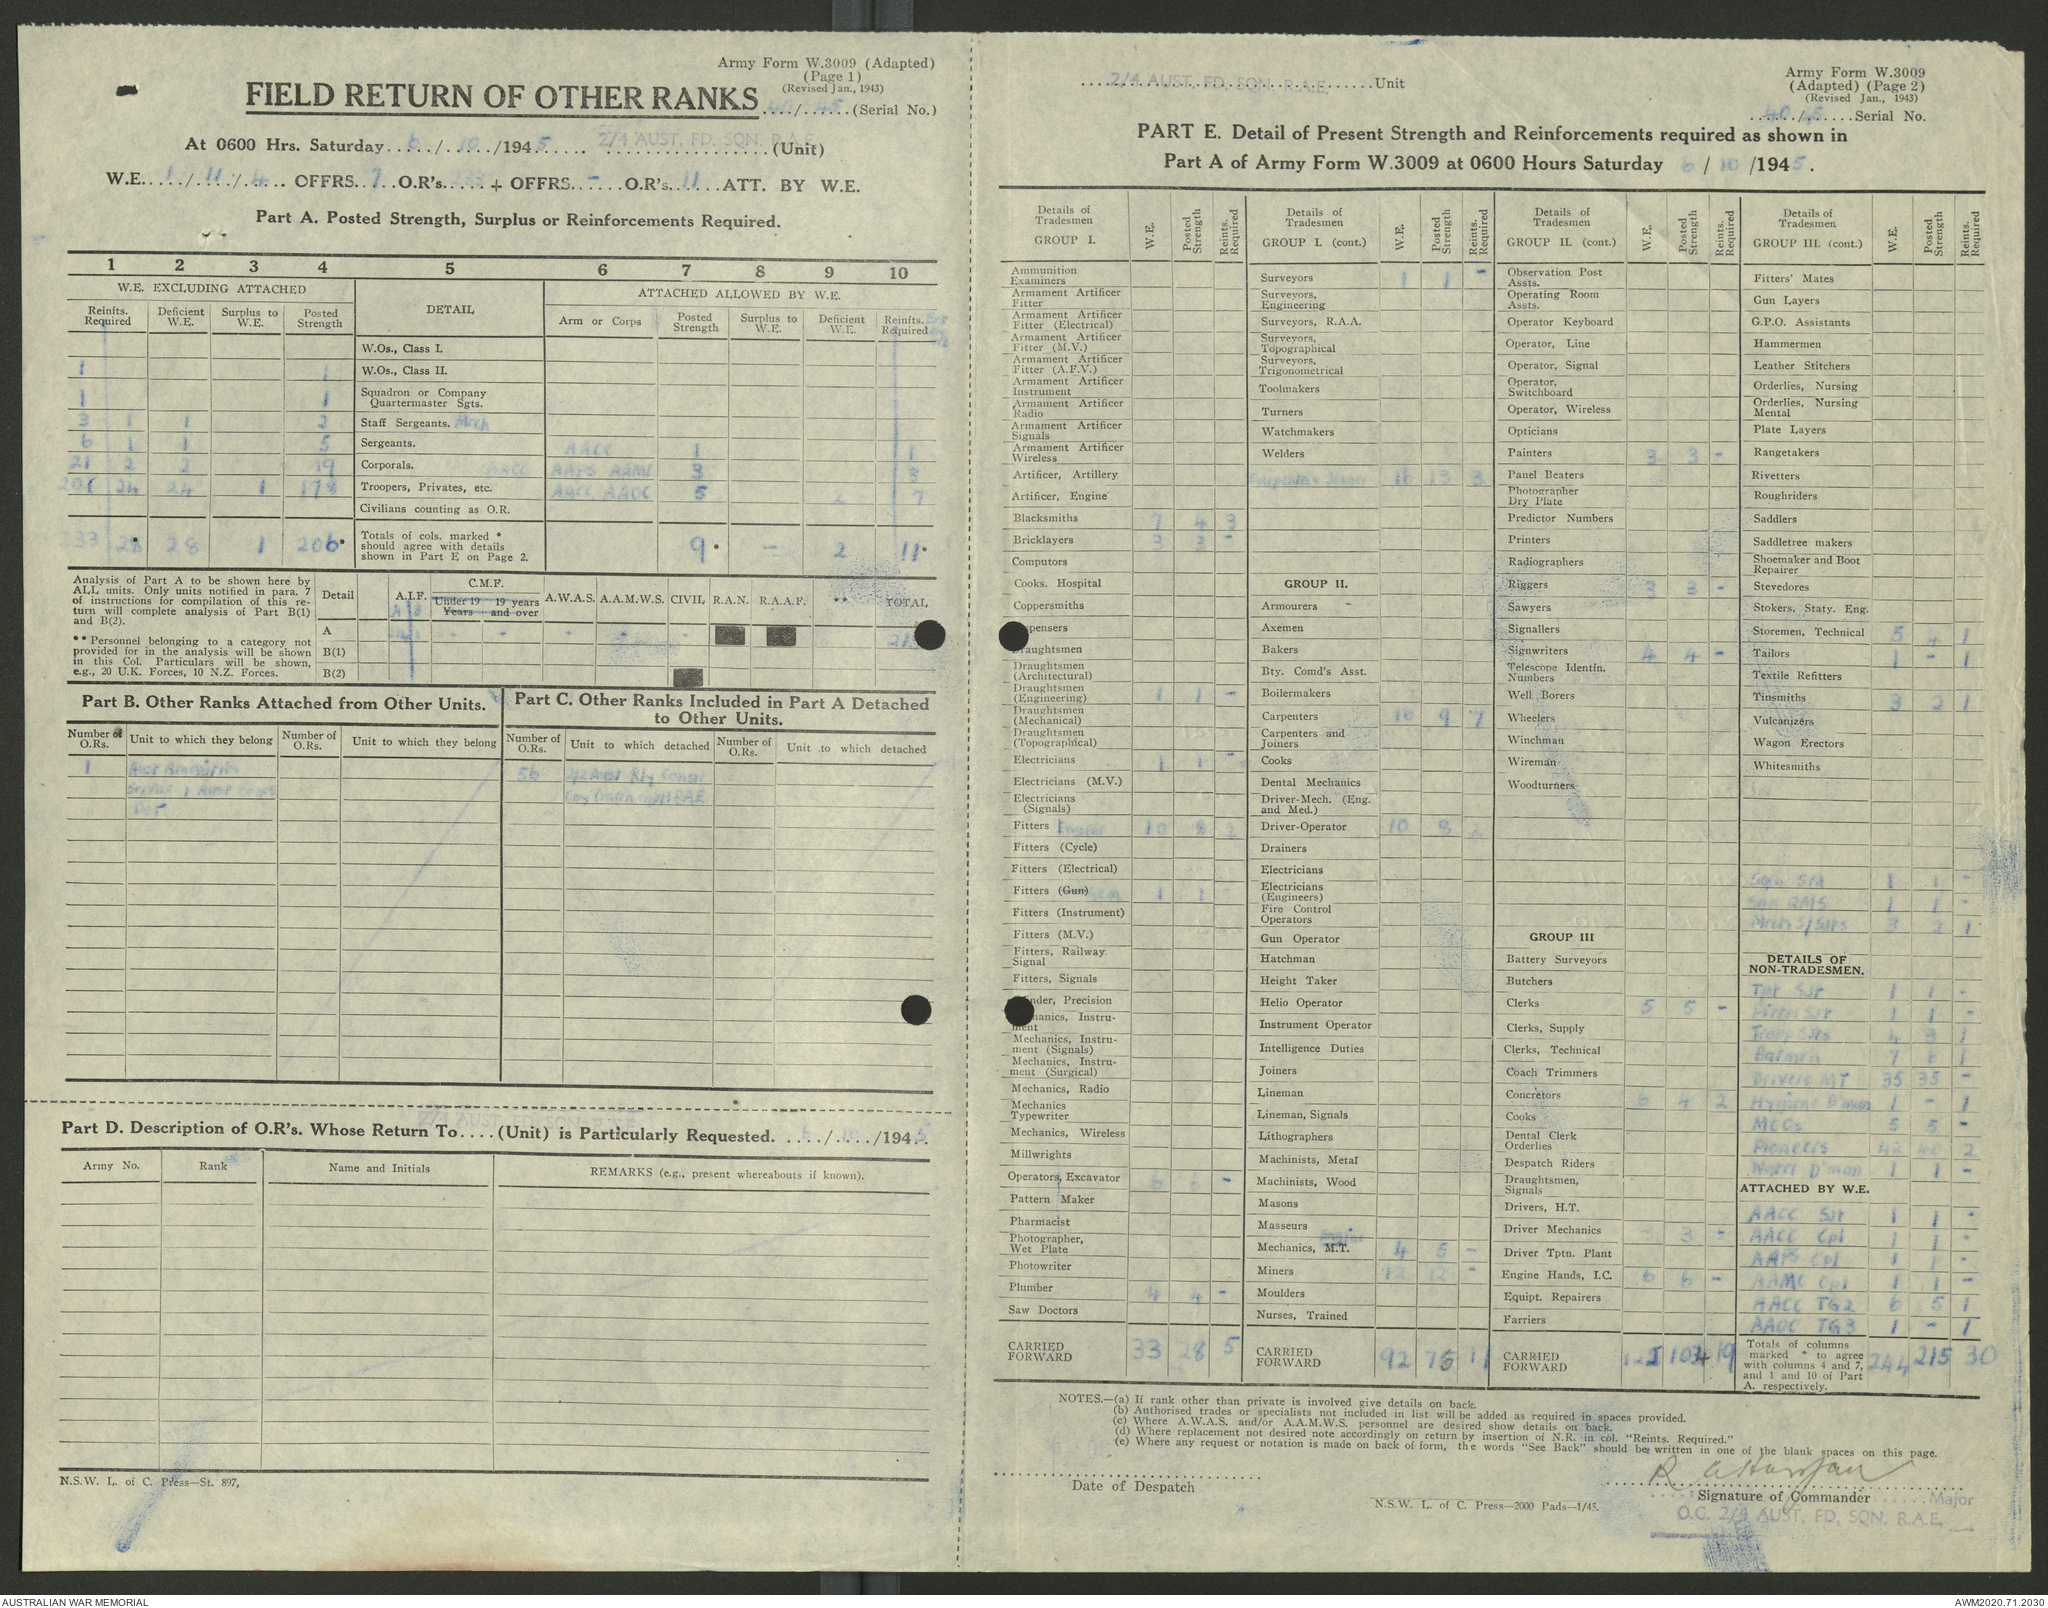 Army Form W.3009 (Adapted)
(Page 1)
(Revised Jan., 1943)
FIELD RETURN OF OTHER RANKS 40/45 (Serial No.)
At 0600 Hrs. Saturday 6/10/1945 2/4 AUST. FD. SQN. R.A.E. (Unit)
W.E. 1/11/4 OFFRS. 7 O.R's 233 + OFFRS. – O.R's 11 ATT. BY W.E.
Part A. Posted Strength, Surplus or Reinforcements Required.
1 2 3 4 5 6 7 8 9 10
W.E. EXCLUDING ATTACHED DETAIL ATTACHED ALLOWED BY W.E.
Reinfts. Required Deficient W.E. Surplus to W.E. Posted Strength Arm or Corps Posted Strength Surplus to W.E. Deficient W.E. Reinfts. Required
W.Os., Class I.
1 1 W.Os., Class II.
1 1 Squadron or Company Quartermaster Sgts.
3 1 1 2 Staff Sergeants. Mech
6 1 1 5 Sergeants. AACC 1 1
21 2 2 19 Corporals. AACC AAPS AAMC 3 3
201 24 24 1 178 Troopers, Privates, etc. AACC AAOC 5 2 7
Civilians counting as O.R.
233 28* 28 1 206* Totals of cols. marked * should agree with details shown in Part E on Page 2. 9* – 2 11*
Analysis of Part A to be shown here by ALL units. Only units notified in para. 7 of instructions for compilation of this return will complete analysis of Part B(1) and B(2).
**Personnel belonging to a category not provided for in the analysis will be shown in this Col. Particulars will be shown, e.g., 20 U.K. Forces, 10 N.Z. Forces.
Detail A.I.F. C.M.F. Under 19 Years 19 years and over A.W.A.S. A.A.M.W.S. CIVIL R.A.N. R.A.A.F. ** TOTAL
A
B(1)
B(2)
Part B. Other Ranks Attached from Other Units.
Number of O.Rs. Unit to which they belong Number of O.Rs. Unit to which they belong
1 Aust Amenities
Service 1 Aust Corps
Det
Part C. Other Ranks Included in Part A Detached to Other Units.
Number of O.Rs. Unit to which detached Number of O.Rs. Unit to which detached
56
Part D. Description of O.R's. Whose Return To....(Unit) is Particularly Requested. ...../...../1945
2/4 AUST. FD. SQN. R.A.E.
Army No. Rank Name and Initials REMARKS (e.g., present whereabouts if known).
N.S.W. L. of C. Press—St. 897,
2/4 AUST. FD. SQN. R.A.E. Unit
Army Form W.3009
(Adapted) (Page 2)
(Revised Jan., 1943)
40/45 Serial No.
PART E. Detail of Present Strength and Reinforcements required as shown in
Part A of Army Form W.3009 at 0600 Hours Saturday 6/10/1945.
Details of Tradesmen GROUP I. W.E. Posted Strength Reints. Required
Ammunition Examiners
Armament Artificer Fitter
Armament Artificer Fitter (Electrical)
Armament Artificer Fitter (M.V.)
Armament Artificer Fitter (A.F.V.)
Armament Artificer Instrument
Armament Artificer Radio
Armament Artificer Signals
Armament Artificer Wireless
Artificer, Artillery
Artificer, Engine
Blacksmiths 7 4 3
Bricklayers 3 3 -
Computors
Cooks. Hospital
Coppersmiths
pensers
raughtsmen
Draughtsmen (Architectural)
Draughtsmen (Engineering) 1 1 -
Draughtsmen (Mechanical)
Draughtsmen (Topographical)
Electricians 1 1 -
Electricians (M.V.)
Electricians (Signals)
Fitters 10 8 2
Fitters (Cycle)
Fitters (Electrical)
Fitters (Gun) 1 1 -
Fitters (Instrument)
Fitters (M.V.)
Fitters, Railway Signal
Fitters, Signals
nder, Precision
hanics, Instrument
Mechanics, Instrument (Signals)
Mechanics, Instrument (Surgical)
Mechanics, Radio
Mechanics Typewriter
Mechanics, Wireless
Millwrights
Operators, Excavator 6 6 -
Pattern Maker
Pharmacist
Photographer, Wet Plate
Photowriter
Plumber 4 4 -
Saw Doctors
CARRIED FORWARD 33 28 5
Details of Tradesmen GROUP I. (cont.) W.E. Posted Strength Reints. Required
Surveyors 1 1 -
Surveyors, Engineering
Surveyors, R.A.A.
Surveyors, Topographical
Surveyors, Trigonometrical
Toolmakers
Turners
Watchmakers
Welders
Carpenters Joiners 16 13 3
GROUP II.
Armourers
Axemen
Bakers
Bty. Comd's Asst.
Boilermakers
Carpenters 16 9 7
Carpenters and Joiners
Cooks
Dental Mechanics
Driver-Mech. (Eng. and Med.)
Driver-Operator 10 8 2
Drainers
Electricians
Electricians (Engineers)
Fire Control Operators
Gun Operator
Hatchman
Height Taker
Helio Operator
Instrument Operator
Intelligence Duties
Joiners
Lineman
Lineman, Signals
Lithographers
Machinists, Metal
Machinists, Wood
Masons
Masseurs
Mechanics, M.T. 4 5 -
Miners 12 12 -
Moulders
Nurses, Trained
CARRIED FORWARD 92 76 17
Details of Tradesmen GROUP II. (cont.) W.E. Posted Strength Reints. Required
Observation Post Assts.
Operating Room Assts.
Operator Keyboard
Operator, Line
Operator, Signal
Operator, Switchboard
Operator, Wireless
Opticians
Painters 3 3 -
Panel Beaters
Photographer Dry Plate
Predictor Numbers
Printers
Radiographers
Riggers 3 3 -
Sawyers
Signallers
Signwriters 4 4 -
Telescope Identfn. Numbers
Well Borers
Wheelers
Winchman
Wireman
Woodturners
GROUP III
Battery Surveyors
Butchers
Clerks 5 5 -
Clerks, Supply
Clerks, Technical
Coach Trimmers
Concretors 6 4 2
Cooks
Dental Clerk Orderlies
Despatch Riders
Draughtsmen, Signals
Drivers, H.T.
Driver Mechanics 3 3 -
Driver Tptn. Plant
Engine Hands, I.C. 6 6 -
Equipt. Repairers
Farriers
CARRIED FORWARD 104 19
Details of Tradesmen GROUP III. (cont.) W.E. Posted Strength Reints. Required
Fitters' Mates
Gun Layers
G.P.O. Assistants
Hammermen
Leather Stitchers
Orderlies, Nursing
Orderlies, Nursing Mental
Plate Layers
Rangetakers
Rivetters
Roughriders
Saddlers
Saddletree makers
Shoemaker and Boot Repairer
Stevedores
Stokers, Staty. Eng.
Storemen, Technical 5 4 1
Tailors 1 - 1
Textile Refitters
Tinsmiths 3 2 1
Vulcanizers
Wagon Erectors
Whitesmiths
Sqn SM 1 1 -
Sqn QMS 1 1 -
Mech S/Sgts 3 2 1
DETAILS OF NON-TRADESMEN.
Tpt Sgt 1 1 -
1 1 -
Troop Sgts 4 3 1
Batmen 7 6 1
Drivers MT 35 35 -
Hygiene D'man 1 - 1
5 5 -
Pioneers 42 40 2
Water D'man 1 1 -
ATTACHED BY W.E.
AACC Sgt 1 1 -
AACC Cpl 1 1 -
AAPS Cpl 1 1 -
AAMC Cpl 1 1 -
AACC TG2 6 5 1
AAOC TG3 1 - 1
Totals of columns marked * to agree with columns 4 and 7, and 1 and 10 of Part A. respectively. 244 215 30
NOTES.—(a) If rank other than private is involved give details on back.
(b) Authorised trades or specialists not included in list will be added as required in spaces provided.
(c) Where A.W.A.S. and/or A.A.M.W.S. personnel are desired show details on back.
(d) Where replacement not desired note accordingly on return by insertion of N.R. in col. "Reints. Required."
(e) Where any request or notation is made on back of form, the words "See Back" should be written in one of the blank spaces on this page.
Date of Despatch
N.S.W. L. of C. Press—2000 Pads—1/45.
Signature of Commander Major
O.C. 2/4 AUST. FD. SQN. R.A.E.
AUSTRALIAN WAR MEMORIAL
AWM2020.71.2030